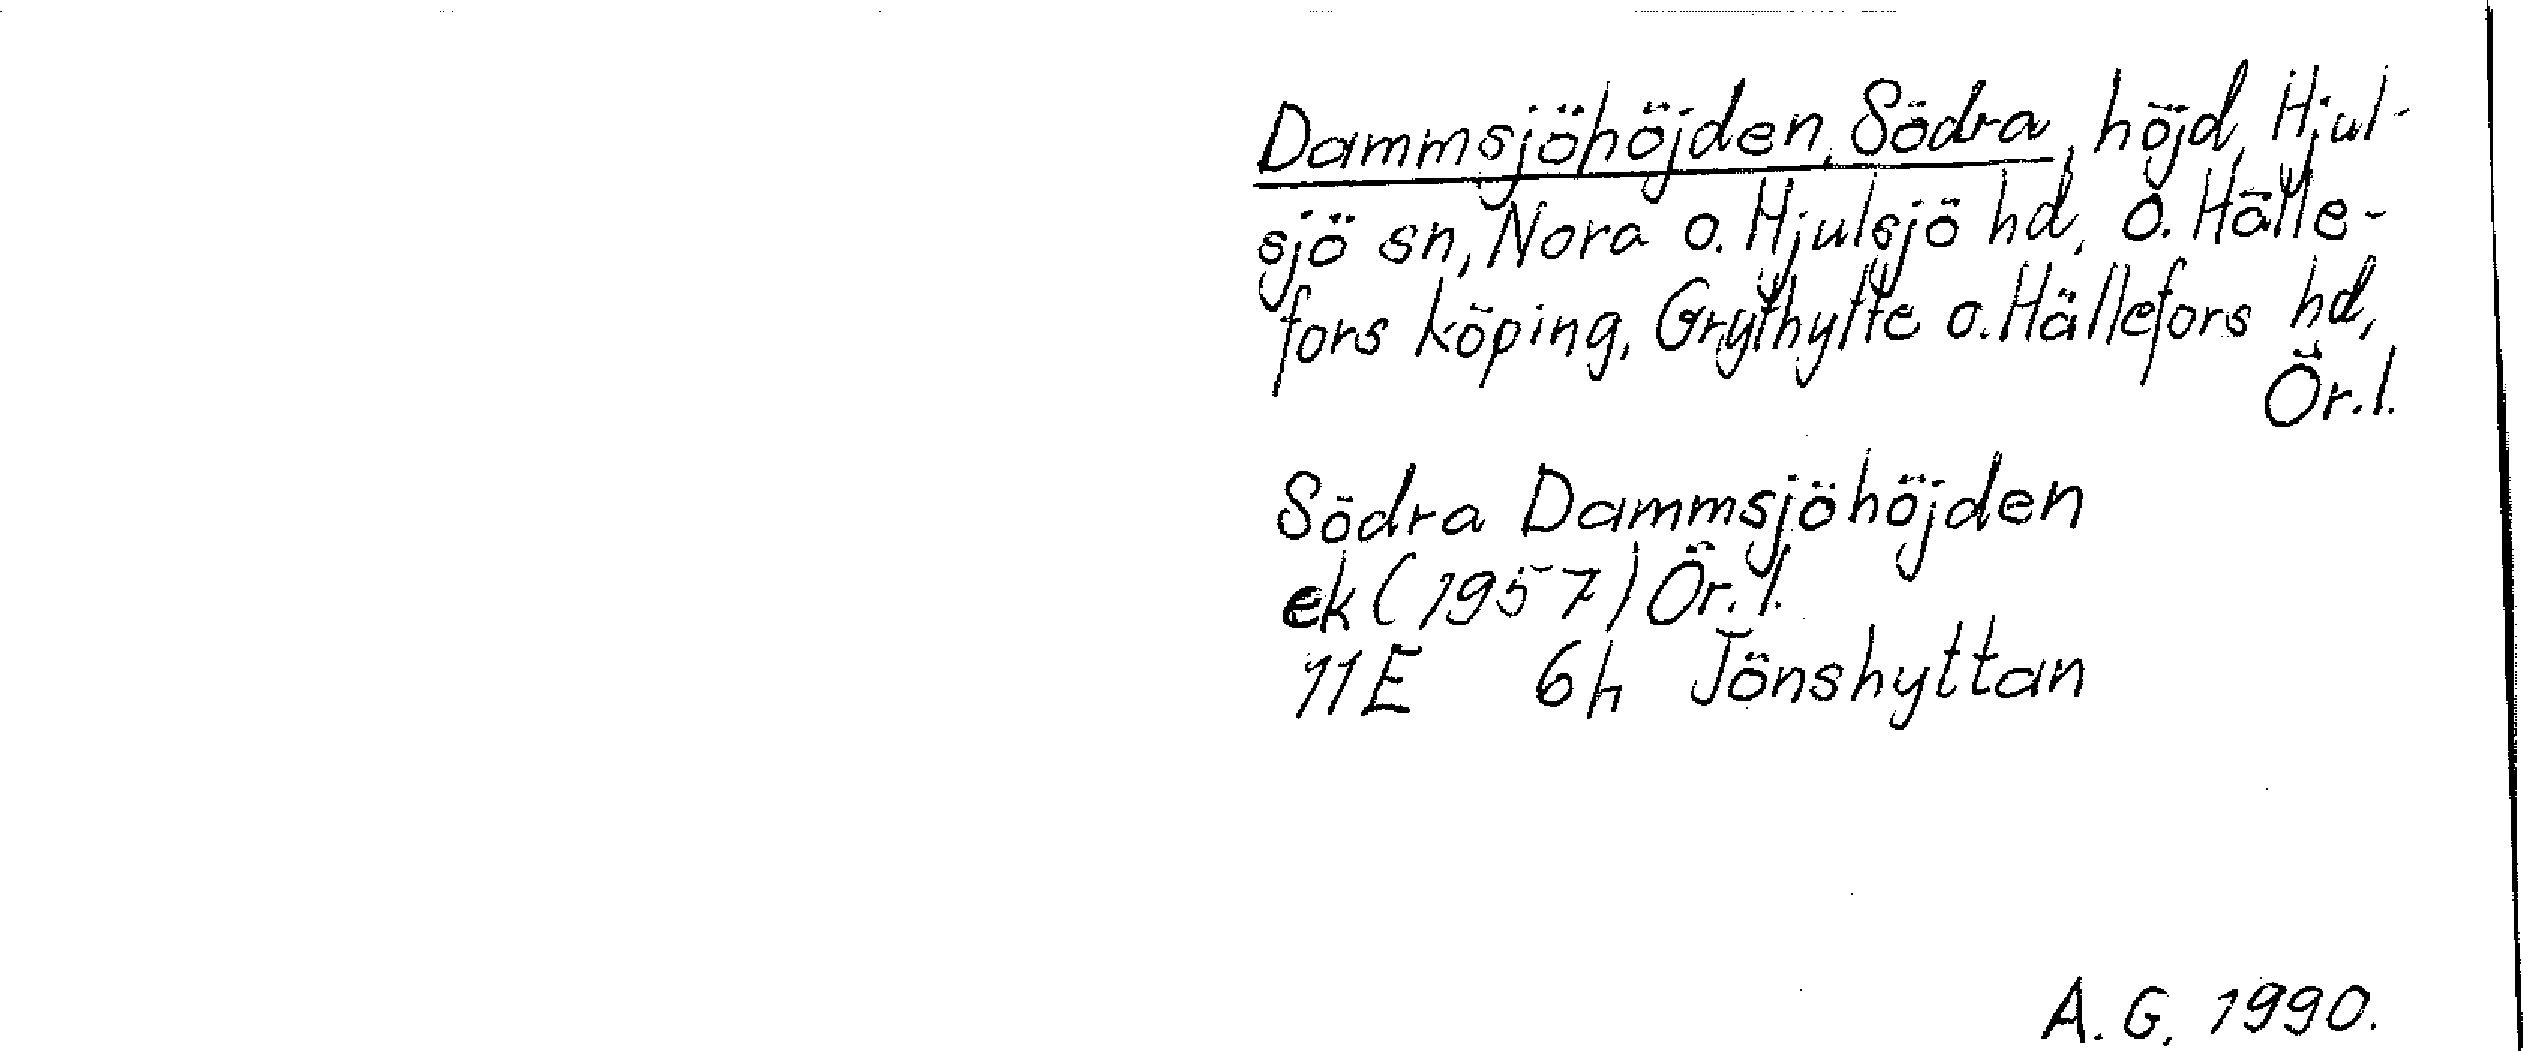 Dammsjöhöjden, Södra, höjd, Hjul-
sjö sn, Nora o. Hjulsjö hd, o. Hälle-
fors köping, Grythytte o. Hällefors hd,
Ör.l.
Södra Dammsjöhöjden
ek (1957) Ör.l.
11E 6h Jönshyttan
A.G. 1990.